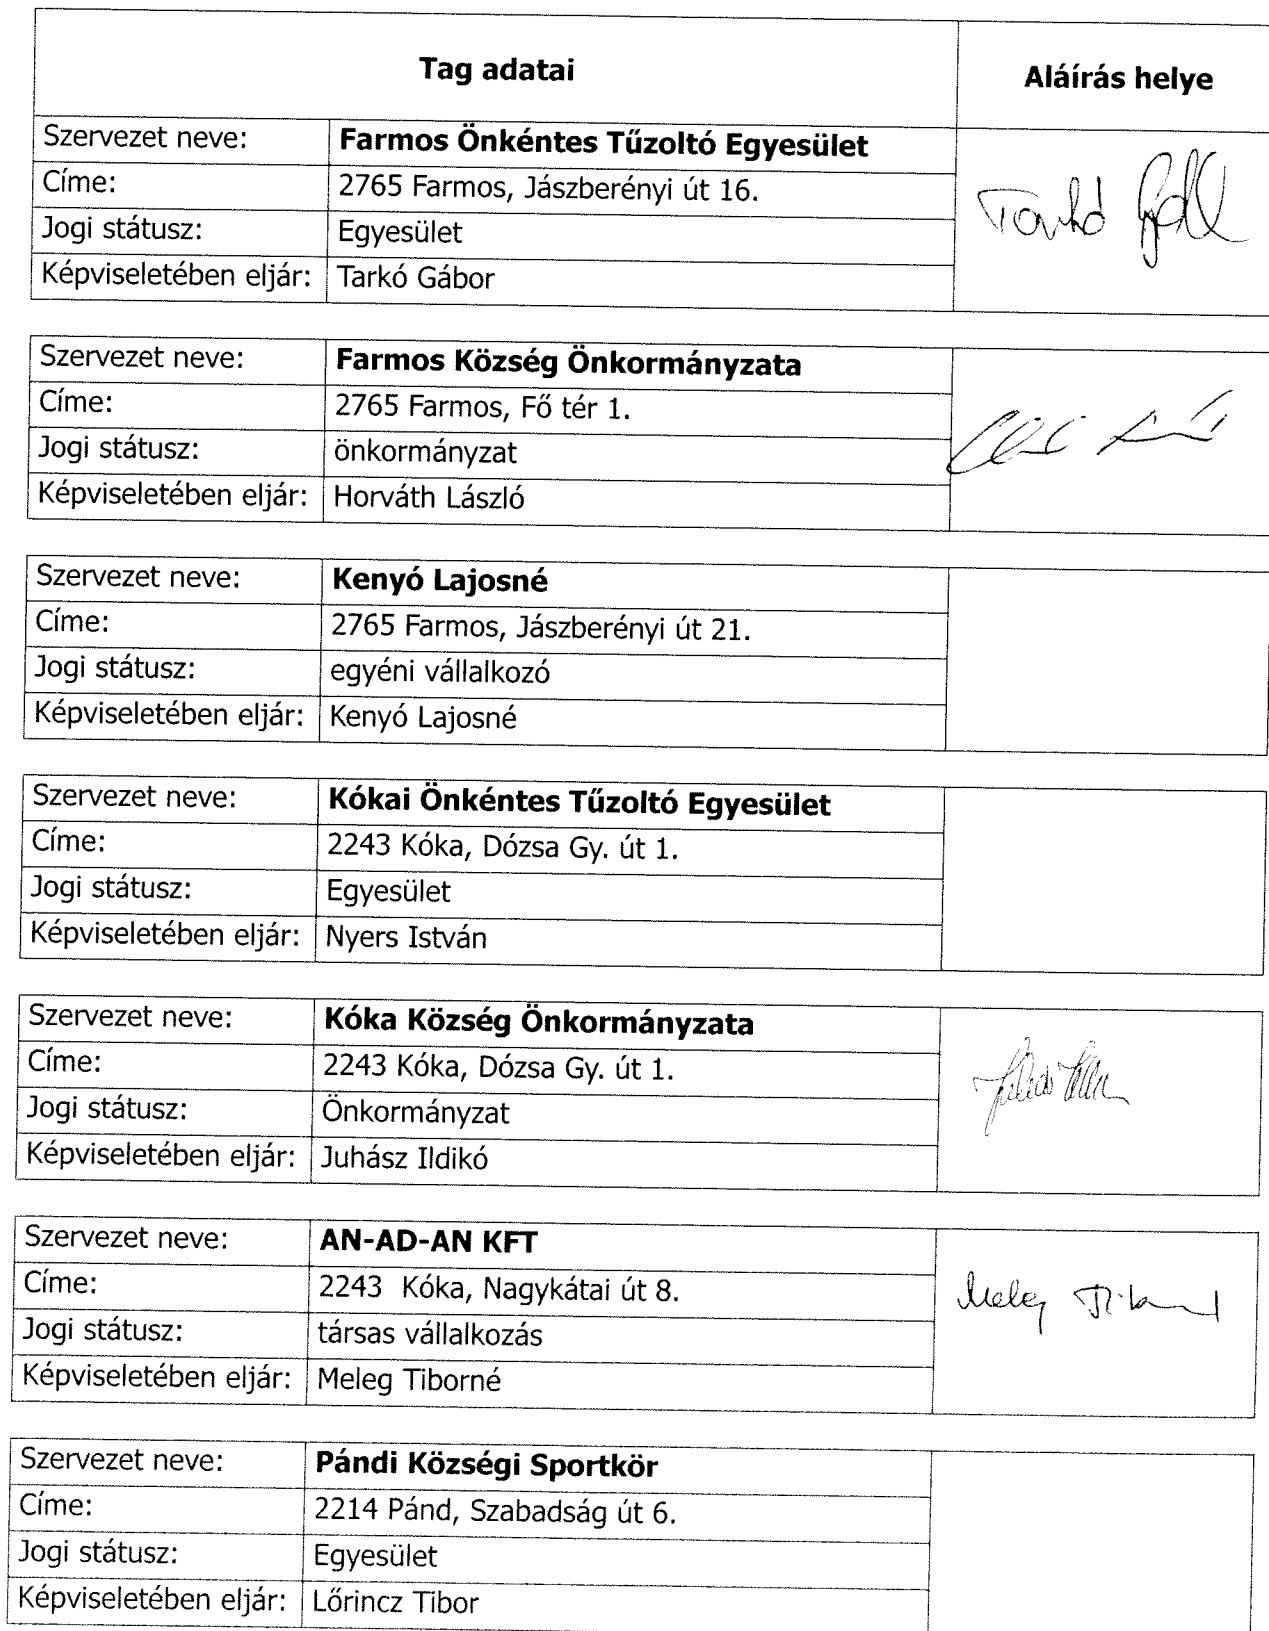 Tag adatai Aláírás helye
Szervezet neve: Farmos Önkéntes Tűzoltó Egyesület
Címe: 2765 Farmos, Jászberényi út 16.
Jogi státusz: Egyesület
Képviseletében eljár: Tarkó Gábor
Tarkó
Szervezet neve: Farmos Község Önkormányzata
Címe: 2765 Farmos, Fő tér 1.
Jogi státusz: önkormányzat
Képviseletében eljár: Horváth László
Szervezet neve: Kenyó Lajosné
Címe: 2765 Farmos, Jászberényi út 21.
Jogi státusz: egyéni vállalkozó
Képviseletében eljár: Kenyó Lajosné
Szervezet neve: Kókai Önkéntes Tűzoltó Egyesület
Címe: 2243 Kóka, Dózsa Gy. út 1.
Jogi státusz: Egyesület
Képviseletében eljár: Nyers István
Szervezet neve: Kóka Község Önkormányzata
Címe: 2243 Kóka, Dózsa Gy. út 1.
Jogi státusz: Önkormányzat
Képviseletében eljár: Juhász Ildikó
Szervezet neve: AN-AD-AN KFT
Címe: 2243 Kóka, Nagykátai út 8.
Jogi státusz: társas vállalkozás
Képviseletében eljár: Meleg Tiborné
Meleg
Szervezet neve: Pándi Községi Sportkör
Címe: 2214 Pánd, Szabadság út 6.
Jogi státusz: Egyesület
Képviseletében eljár: Lőrincz Tibor